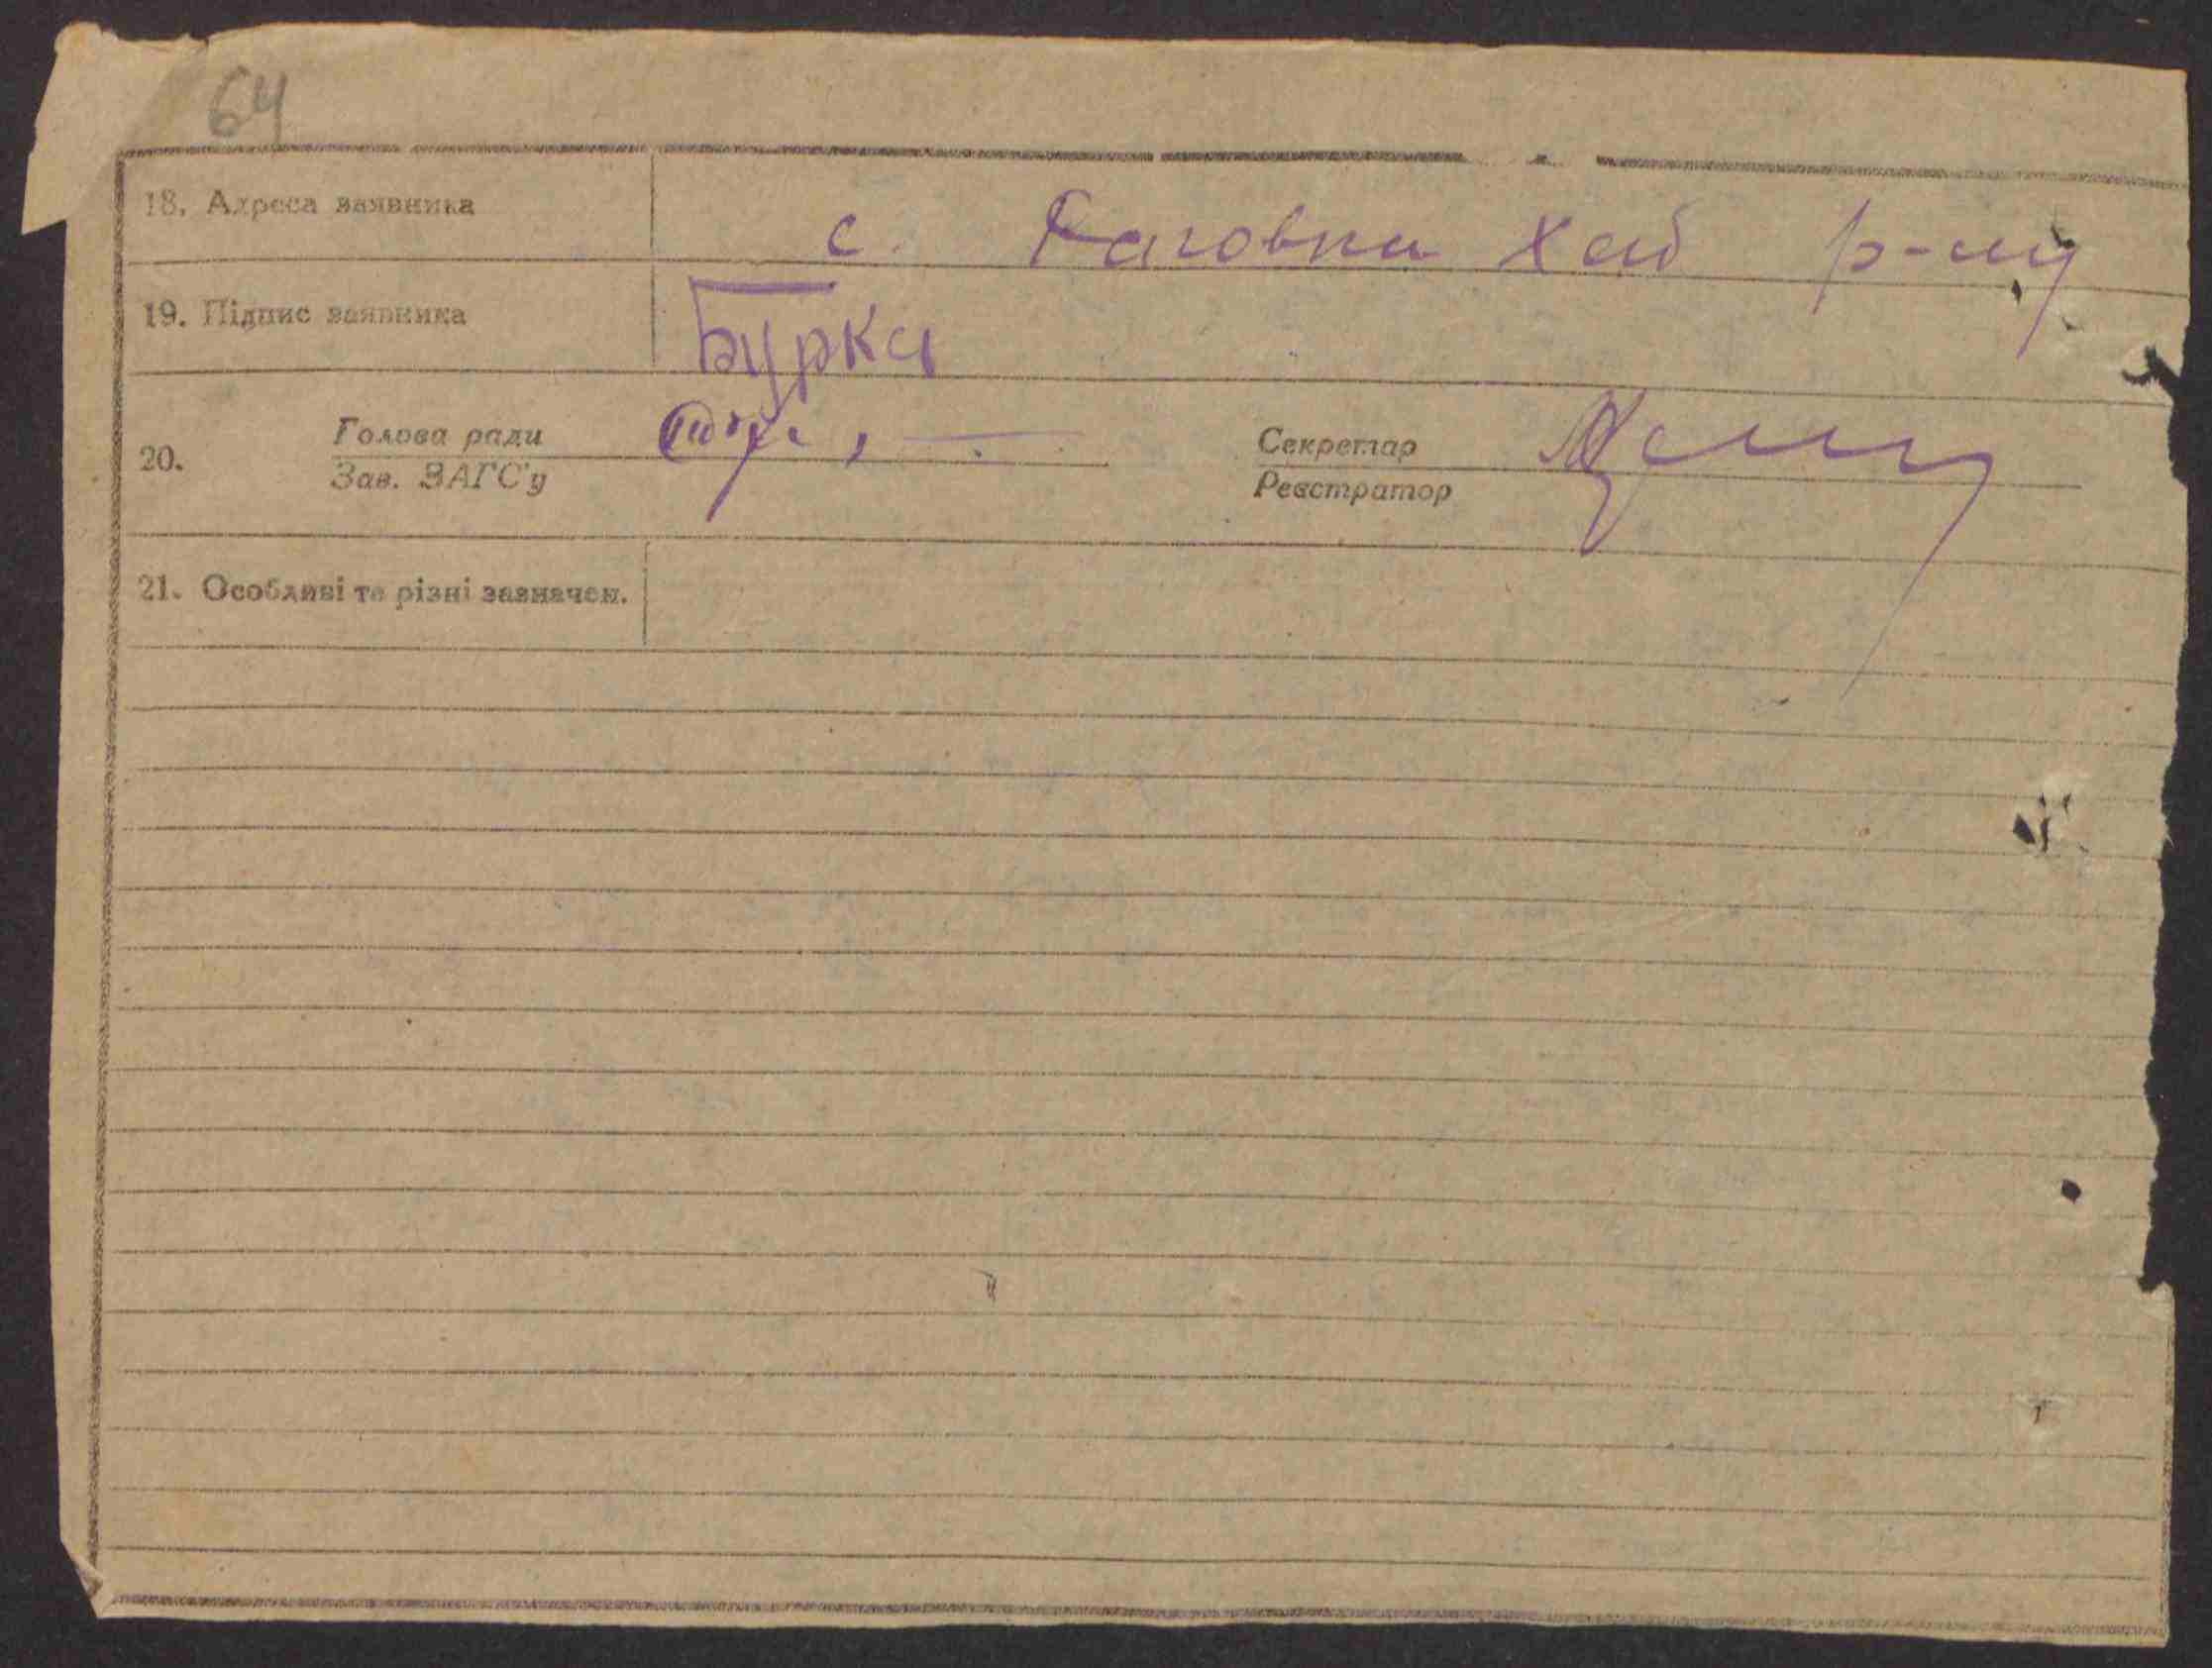 64
18. Адреса заявника с. Раговка Хаб р-ну
19. Підпис заявника Бурка
20. Голова ради Секретар
Зав. ЗАГС'у Реєстратор
21. Особливі та різні зазначен.